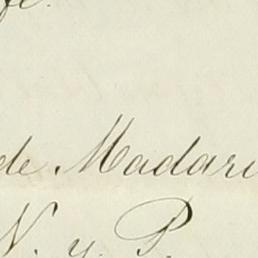 de Madari
N. y P.